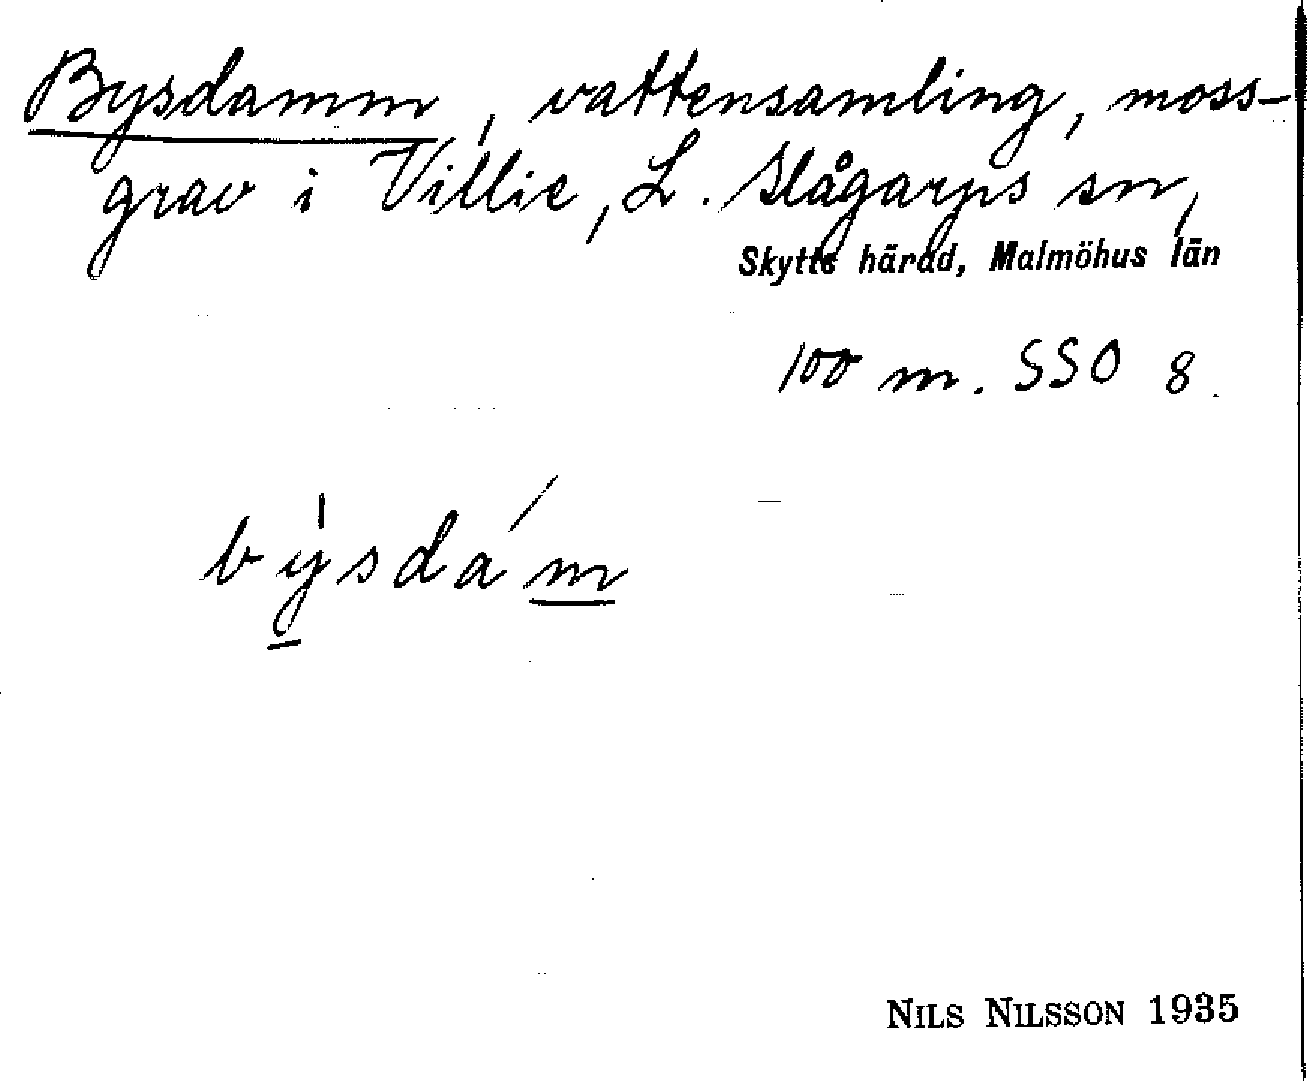 Bysdamm, vattensamling, moss-
grav i Villie, L. Slågarps sn,
Skytts härad, Malmöhus län
100 m. SSO 8.
bysdam
NILS NILSSON 1935